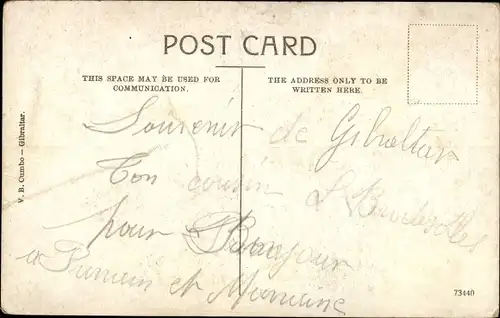 POST CARD
THIS SPACE MAY BE USED FOR
COMMUNICATION.
THE ADDRESS ONLY TO BE
WRITTEN HERE.
V. B. Cumbo – Gibraltar.
Souvenir de Gibraltar
Ton cousin
pour Bonjour
a et
73440